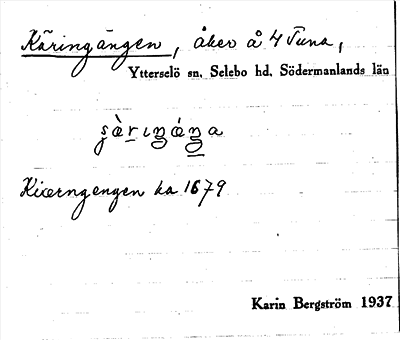 Käringängen, åker å 4 Tuna,
Ytterselö sn, Selebo hd, Södermanlands län
Kiærngengen ha 1679
Karin Bergström 1937